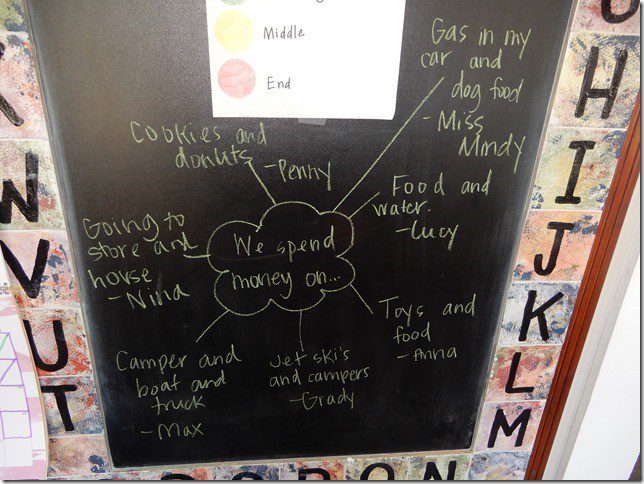 Middle
End
Gas in my
car and
dog food
- Miss
Mindy
Cookies and
donuts
- Penny
Food and
water.
- Lucy
Going to
store and
horse
- Nina
We spend
money on...
Toys and
food
- Anna
Camper and
boat and
truck
- Max
Jet ski's
and campers
- Grady
H
I
J
K
L
M
W
V
U
T